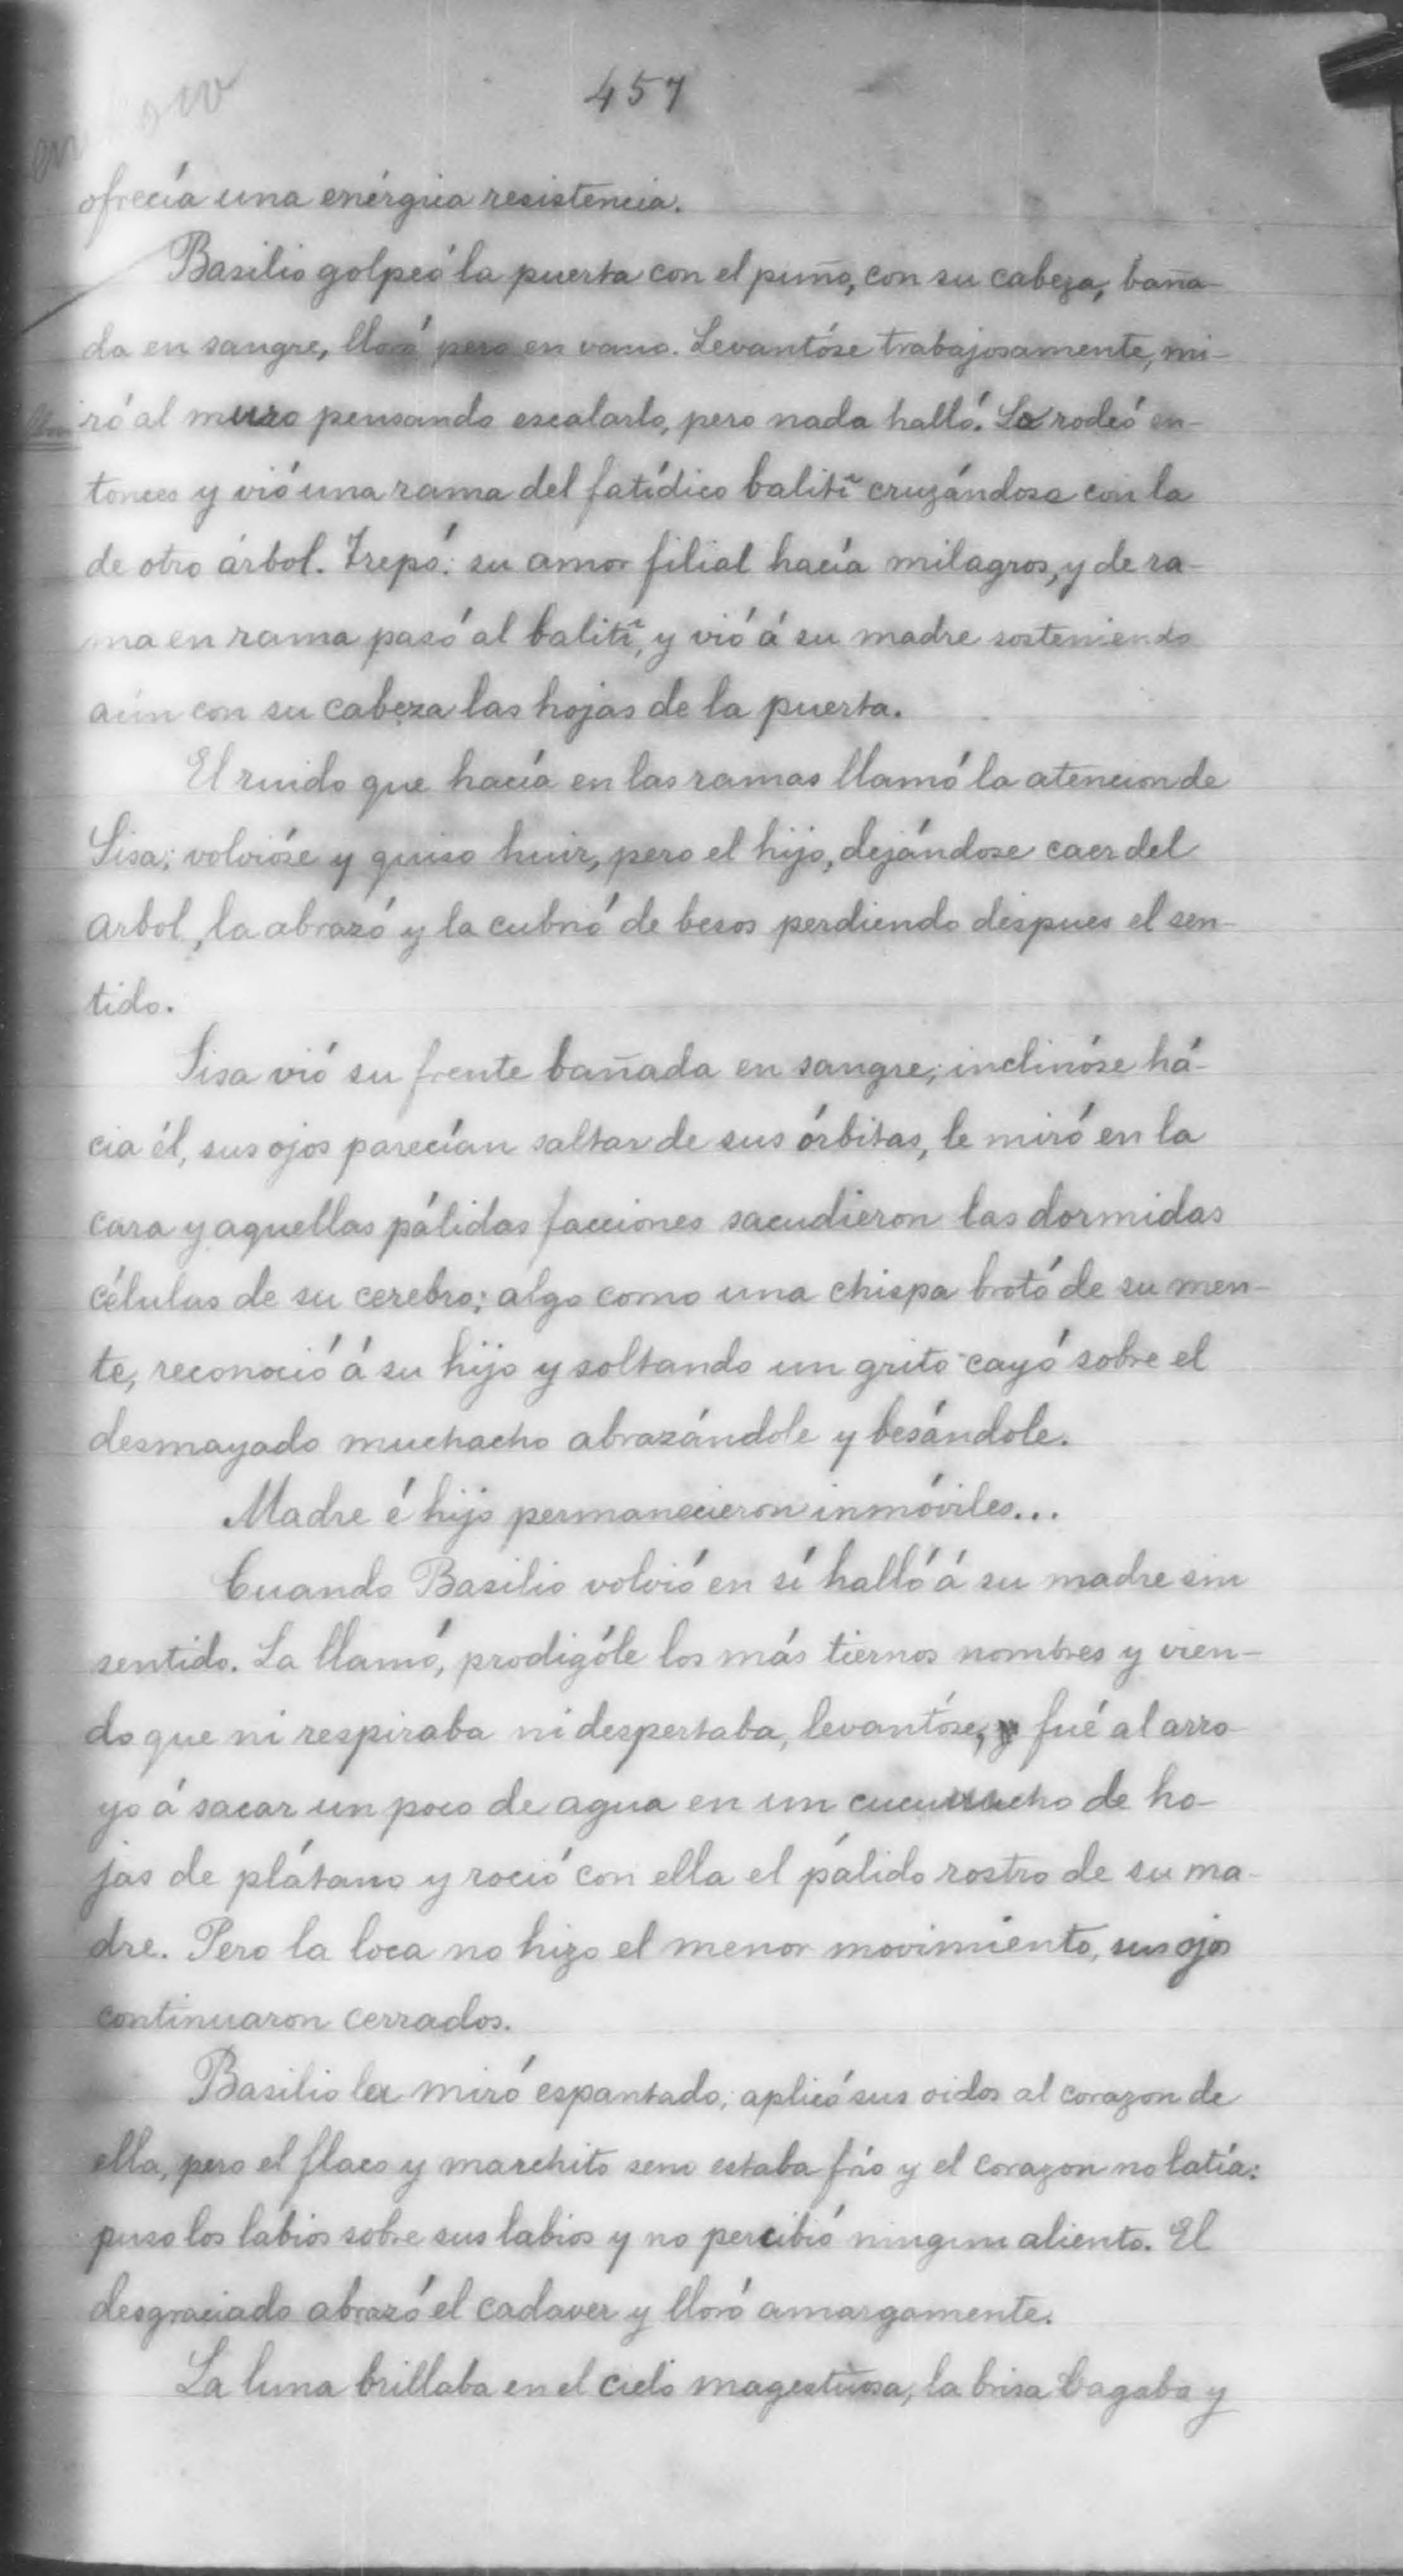 457
ofrecía una enérgica resistencia.
Basilio golpeó la puerta con el puño, con su cabeza, baña-
da en sangre, lloró pero en vano. Levantóse trabajosamente, mi-
ró al muro pensando escalarlo, pero nada halló. Lo rodeó en-
tonces y vió una rama del fatídico balitî cruzándose con la
de otro árbol. Trepó: su amor filial hacía milagros, y de ra-
ma en rama pasó al balitî, y vió á su madre sosteniendo
aún con su cabeza las hojas de la puerta.
El ruido que hacía en las ramas llamó la atencion de
Sisa; volvióse y quiso huir, pero el hijo, dejándose caer del
arbol, la abrazó y la cubrió de besos perdiendo despues el sen-
tido.
Sisa vió su frente bañada en sangre; inclinóse há-
cia él, sus ojos parecían saltar de sus órbitas, le miró en la
cara y aquellas pálidas facciones sacudieron las dormidas
células de su cerebro; algo como una chispa brotó de su men-
te, reconoció á su hijo y soltando un grito cayó sobre el
desmayado muchacho abrazándole y besándole.
Madre é hijo permanecieron inmóviles...
Cuando Basilio volvió en sí halló á su madre sin
sentido. La llamó, prodigóle los más tiernos nombres y vien-
do que ni respiraba ni despertaba, levantóse, fué al arro-
yo á sacar un poco de agua en un cucurucho de ho-
jas de plátano y roció con ella el pálido rostro de su ma-
dre. Pero la loca no hizo el menor movimiento, sus ojos
continuaron cerrados.
Basilio la miró espantado; aplicó sus oidos al corazon de
ella, pero el flaco y marchito seno estaba frío y el corazon no latía:
puso los labios sobre sus labios y no percibió ningun aliento. El
desgraciado abrazó el cadaver y lloró amargamente.
La luna brillaba en el cielo magestuosa, la brisa vagaba y